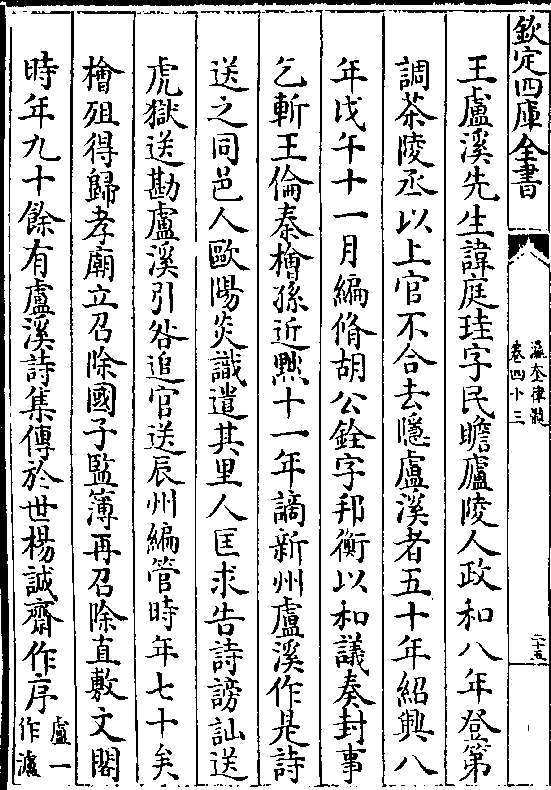 欽定四庫全書
瀛奎律髓
卷四十三
二十五
王盧溪先生諱庭珪字民瞻廬陵人政和八年登第
調茶陵丞以上官不合去隱盧溪者五十年紹興八
年戊午十一月編脩胡公銓字邦衡以和議奏封事
乞斬王倫秦檜孫近㸃十一年謫新州盧溪作是詩
送之同邑人歐陽炎識遣其里人匡求告詩謗訕送
虎獄送勘盧溪引咎追官送辰州編管時年七十矣
檜殂得歸孝廟立召除國子監簿再召除直敷文閣
時年九十餘有盧溪詩集傳於世楊誠齋作序盧一
作瀘